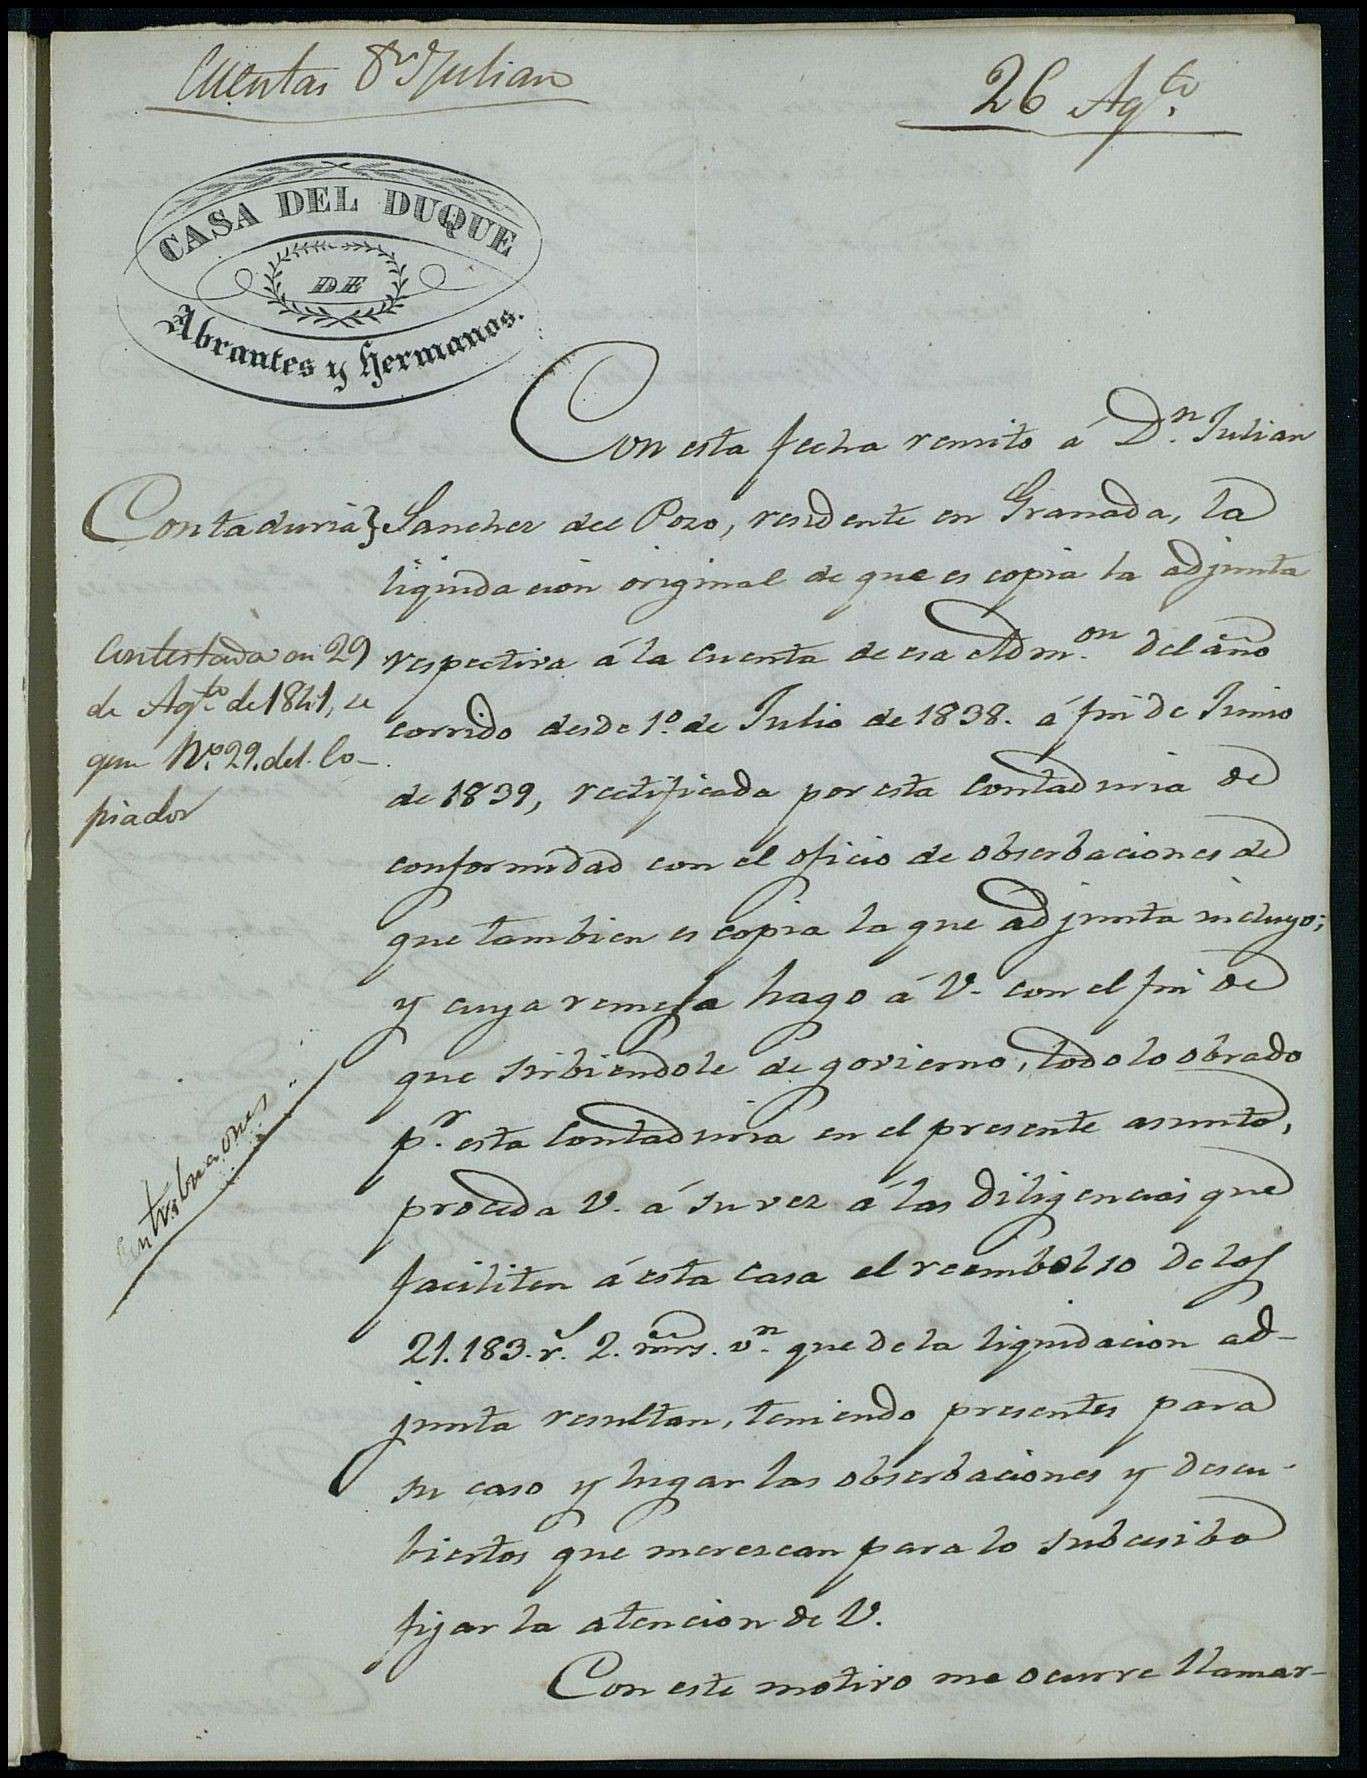 Cuentas Dn Julian
26 Agto.
CASA DEL DUQUE
DE
Abrantes y hermanos.
Con esta fecha remito á Dn. Julian
Contaduria} Sanchez del Pozo, residente en Granada, la
liquidacion original de que es copia la adjunta
respectiva á la cuenta de esa Admon. del año
corrido desde 1º. de Julio de 1838. á fin de Junio
de 1839, rectificada por esta Contaduria de
conformidad con el oficio de obserbaciones de
que tambien es copia la que adjunta incluyo;
y cuya remesa hago á V. con el fin de
que sirbiendole de govierno, todo lo obrado
pr. esta Contaduria en el presente asunto,
proceda V. á su vez á las diligencias que
faciliten á esta casa el reembolso de los
21.183. rs. 2. mrs. vn. que de la liquidacion ad-
junta resultan, teniendo presentes para
su caso y lugar las obserbaciones y descu-
biertos que merezcan para lo subcesibo
fijar la atencion de V.
Con este motivo me ocurre llamar-
Contestada en 29
de Agto. de 1841, se
gun No. 29. del Co-
piador